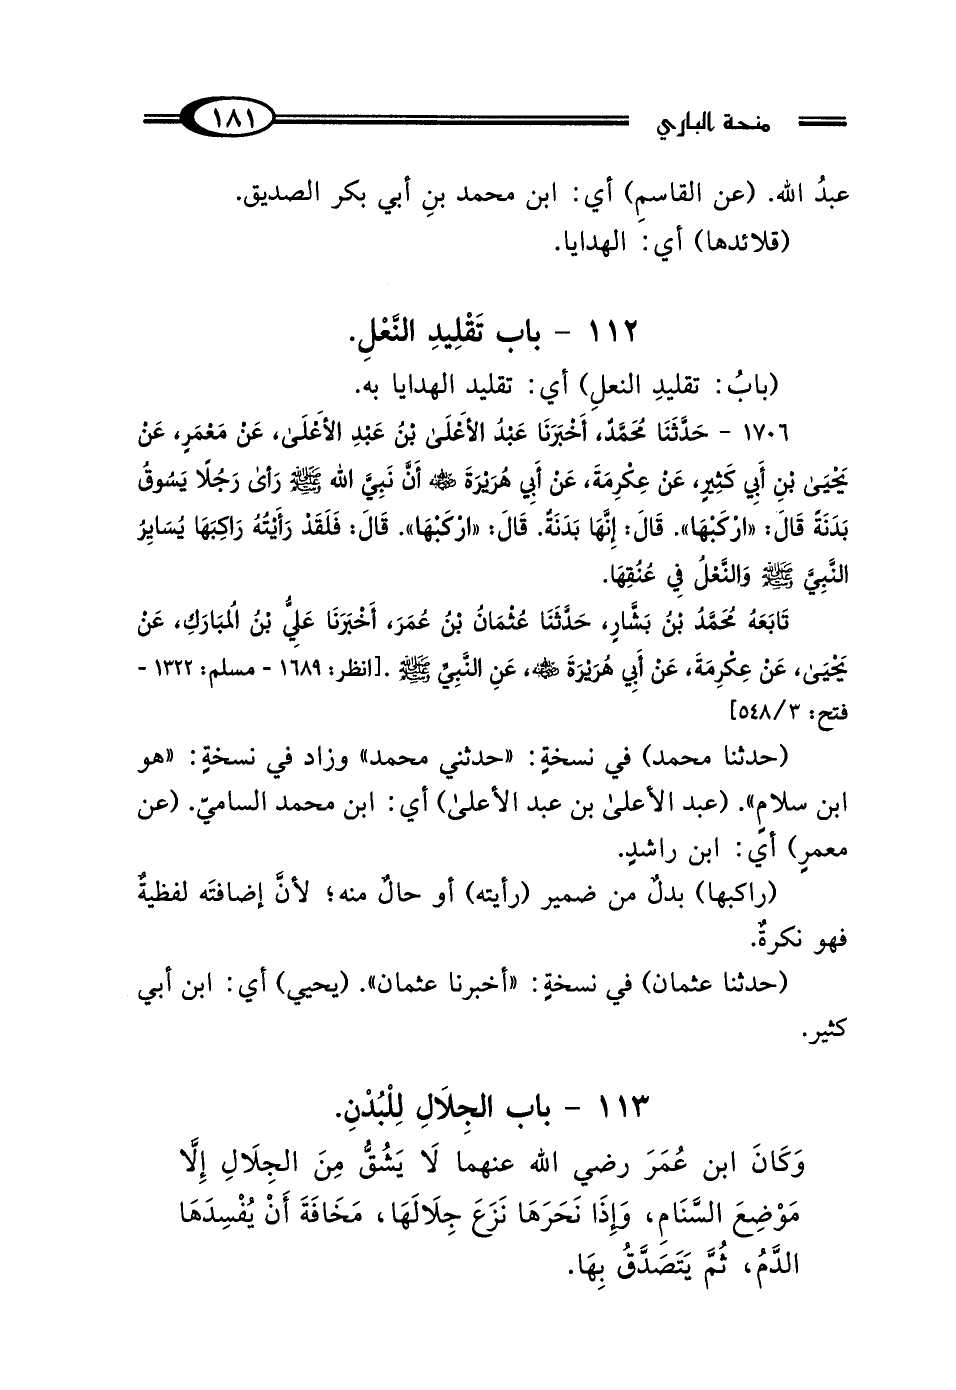 منحة الباري ١٨١
عبدُ الله. (عن القاسمِ) أي: ابن محمد بنِ أبي بكر الصديق.
(قلائدها) أي: الهدايا.
١١٢ - باب تَقْلِيدِ النَّعْلِ.
(بابُ: تقليدِ النعلِ) أي: تقليد الهدايا به.
١٧٠٦ - حَدَّثَنَا مُحَمَّدٌ، أَخْبَرَنَا عَبْدُ الأَعْلَىٰ بْنُ عَبْدِ الأَعْلَىٰ، عَنْ مَعْمَرٍ، عَنْ
يَحْيَىٰ بْنِ أَبِي كَثِيرٍ، عَنْ عِكْرِمَةَ، عَنْ أَبِي هُرَيْرَةَ ﵁ أَنَّ نَبِيَّ الله ﷺ رَأىٰ رَجُلًا يَسُوقُ
بَدَنَةً قَالَ: «ارْكَبْهَا». قَالَ: إِنَّهَا بَدَنَةٌ. قَالَ: «ارْكَبْهَا». قَالَ: فَلَقَدْ رَأَيْتُهُ رَاكِبَهَا يُسَايِرُ
النَّبِيَّ ﷺ وَالنَّعْلُ فِي عُنُقِهَا.
تَابَعَهُ مُحَمَّدُ بْنُ بَشَّارٍ، حَدَّثَنَا عُثْمَانُ بْنُ عُمَرَ، أَخْبَرَنَا عَلِيُّ بْنُ الْمُبَارَكِ، عَنْ
يَحْيَىٰ، عَنْ عِكْرِمَةَ، عَنْ أَبِي هُرَيْرَةَ ﵁، عَنِ النَّبِيِّ ﷺ .[انظر: ١٦٨٩ - مسلم: ١٣٢٢ -
فتح: ٥٤٨/٣]
(حدثنا محمد) في نسخةٍ: «حدثني محمد» وزاد في نسخةٍ: «هو
ابن سلامٍ». (عبد الأعلىٰ بن عبد الأعلىٰ) أي: ابن محمد الساميّ. (عن
معمرٍ) أي: ابن راشدٍ.
(راكبها) بدلٌ من ضمير (رأيته) أو حالٌ منه؛ لأنَّ إضافتَه لفظيةٌ
فهو نكرةٌ.
(حدثنا عثمان) في نسخةٍ: «أخبرنا عثمان». (يحيي) أي: ابن أبي
كثير.
١١٣ - باب الجِلَالِ لِلْبُدْنِ.
وَكَانَ ابن عُمَرَ رضي الله عنهما لَا يَشُقُّ مِنَ الجِلَالِ إِلَّا
مَوْضِعَ السَّنَامِ، وَإِذَا نَحَرَهَا نَزَعَ جِلَالَهَا، مَخَافَةَ أَنْ يُفْسِدَهَا
الدَّمُ، ثُمَّ يَتَصَدَّقُ بِهَا.